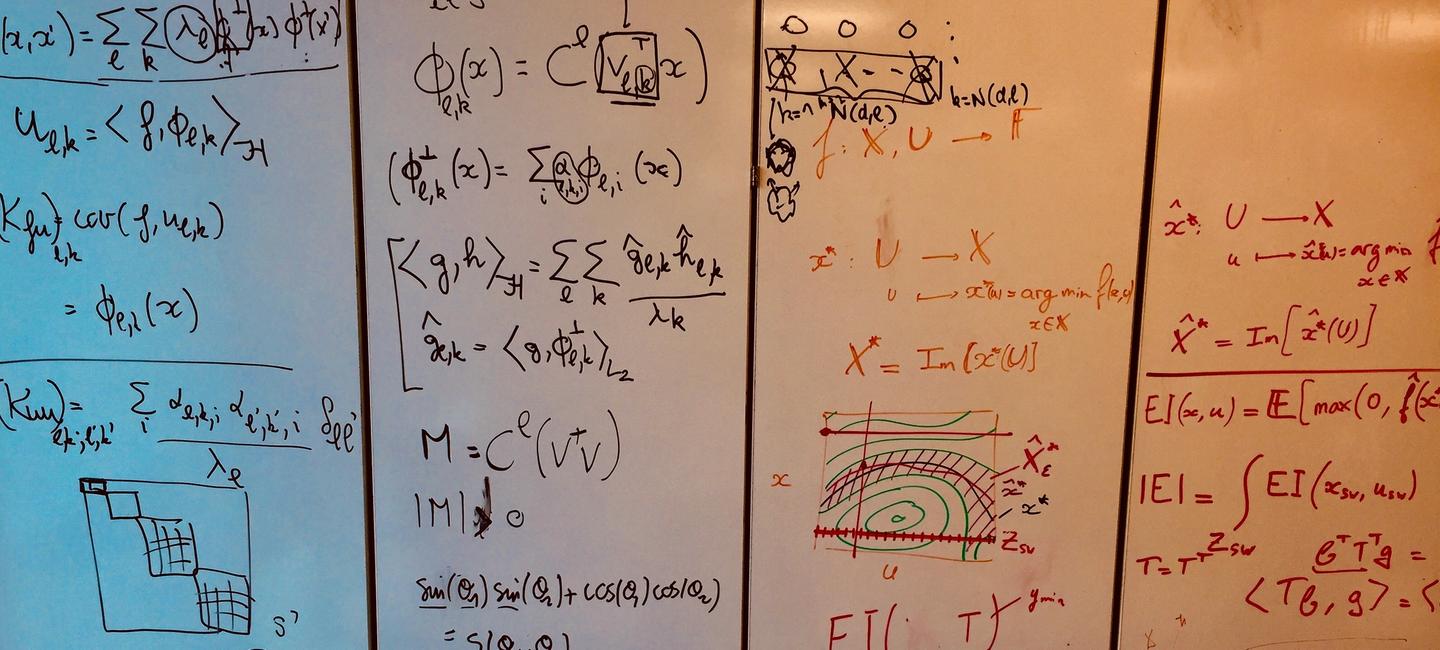 (x,x') = ∑_ℓ ∑_k λ_ℓ ϕ^⊥(x) ϕ^⊥(x')
u_{ℓ,k} = ⟨f, ϕ_{ℓ,k}⟩_H
(K_{fu})_{ℓ,k} = cov(f, u_{ℓ,k})
= ϕ_{ℓ,k}(x)
(K_{uu})_{ℓ,k;ℓ',k'} = ∑_i α_{ℓ,k,i} α_{ℓ',k',i} δ_{ℓℓ'}
λ_ℓ
ϕ_{ℓ,k}(x) = C^ℓ(V_{ℓ,k}^T x)
(ϕ^⊥_{ℓ,k}(x) = ∑_i α_{ℓ,k,i} ϕ_{ℓ,i}(x)
⟨g,h⟩_H = ∑_ℓ ∑_k ĝ_{ℓ,k} ĥ_{ℓ,k} / λ_k
ĝ_{ℓ,k} = ⟨g, ϕ^⊥_{ℓ,k}⟩_{L_2}
M = C^ℓ(V^T V)
|M| 0
sin(θ_1) sin(θ_2) + cos(θ_1) cos(θ_2)
k=N(d,ℓ)
N(d,ℓ)
f: X, U → F
x*: U → X
u ↦ x*(u) = arg min f(x,u)
x∈X
X* = Im[x*(U)]
X̂*_ε
x̂*
x
x*
Z_{sw}
u
EI( T) y_{min}
x̂*: U → X
u ↦ x̂*(u) = arg min
x∈X
X̂* = Im[x̂*(U)]
EI(x,u) = E[max(0, f̂(x*
|EI| = ∫ EI(x_{sw}, u_{sw})
Z_{sw}
T = T^T
b^T T^T g =
⟨Tb, g⟩ =